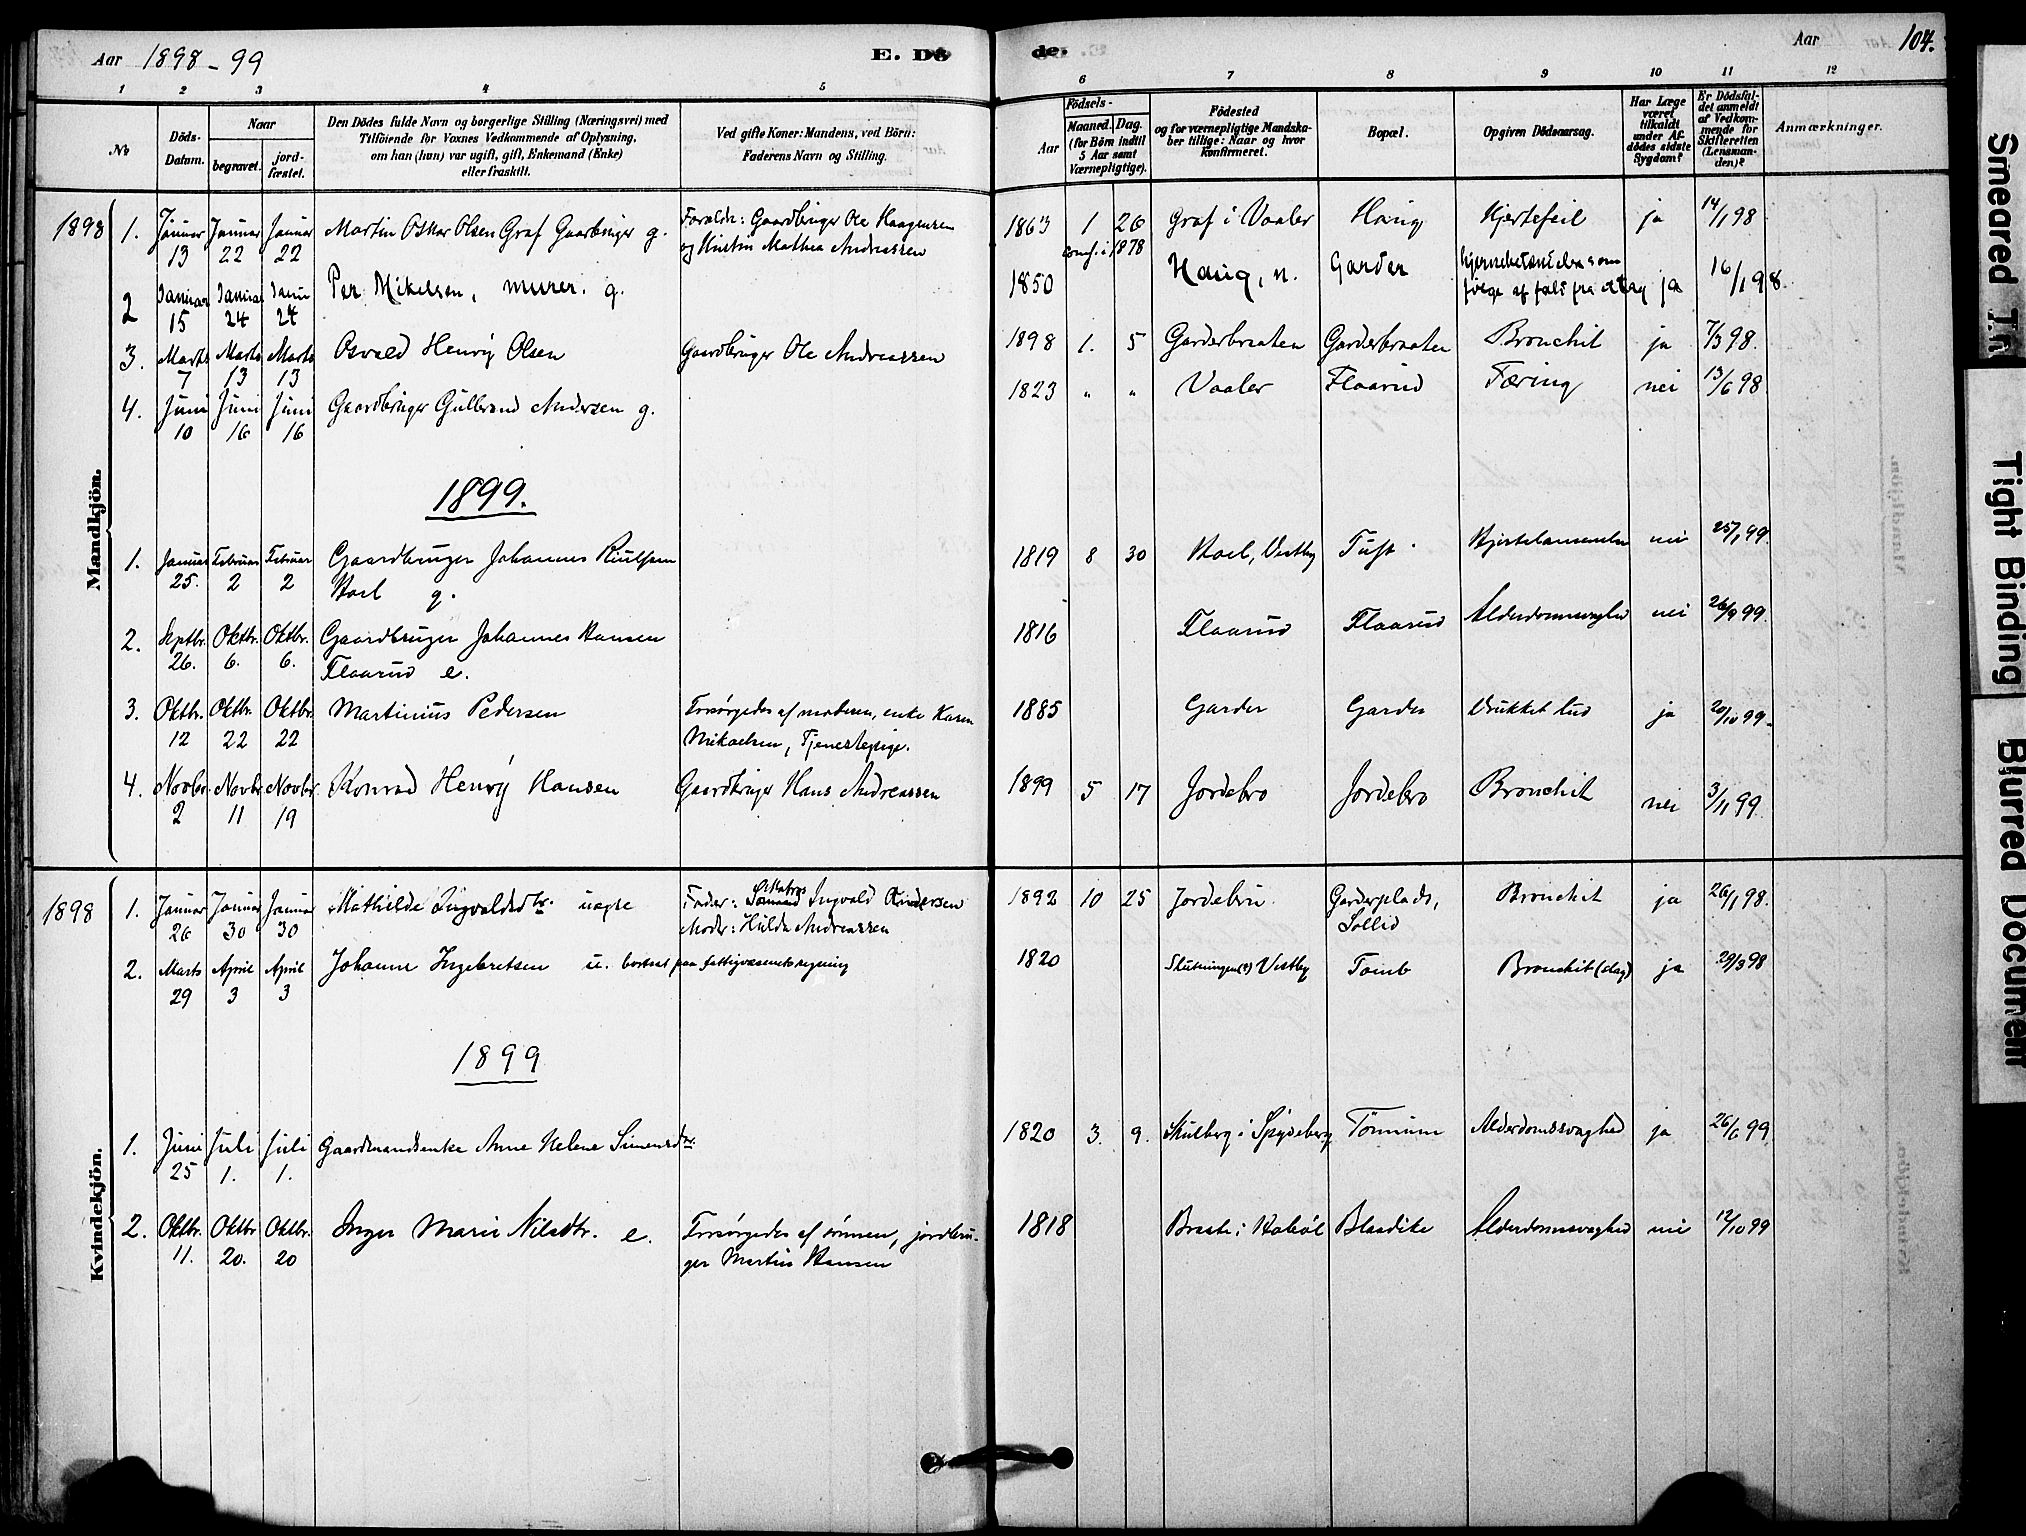 Aar 1898-99 E. Dö
de. Aar 104.
1 2 3 4 5 6 7 8 9 10 11 12
No
Döds-Datum.
Naar
begravet.
jord-fæstet.
Den Dödes fulde Navn og borgerlige Stilling (Næringsvei) med
Tilföiende for Voxnes Vedkommende af Oplysning,
om han (hun) var ugift, gift, Enkemand (Enke)
eller fraskilt.
Ved gifte Koner: Mandens, ved Börn:
Faderens Navn og Stilling.
Födsels-
Aar
Maaned. Dag.
(for Börn indtil
5 Aar samt
Værnepligtige).
Födested
og for værnepligtige Mandska-
ber tillige: Naar og hvor
Konfirmeret.
Bopæl.
Opgiven Dödsaarsag.
Har Læge
været
tilkaldt
under Af-
dödes sidste
Sygdom?
Er Dödsfal-
det anmeldt
af Vedkom-
mende for
Skifteretten
(Lensman-
den)?
Anmærkninger.
Mandkjön.
1898 1. Januar 13 Januar 22 Januar 22 Martin Oskar Olsen Graf Gaardbruger g. Forældre: Gaardbruger Ole Haagensen 1863 1 26 Graf i Vaaler Haug Hjertefeil ja 14/1 98
og Hustru Mathea Andreassen conf. i 1878
2 Januar 15 Januar 24 Januar 24 Per Mikelsen, murer. g. 1850 Haug, n. Garder Hjernebetændelse som
følge af fald fra ja 16/1 98.
3. Marts 7 Marts 13 Marts 13 Osvald Henrÿ Olsen Gaardbruger Ole Andreassen 1898 1. 5 Garderbraaten Garderbraaten Bronchit ja 7/3 98.
4. Juni 10 Juni 16 Juni 16 Gaardbruger Gulbrand Andersen g. 1823 " " Vaaler Flaarud Tæring nei 13/6 98.
1899.
1. Januar 25. Februar 2 Februar 2 Gaardbruger Johannes 1819 8 30 Vestby Tuft nei 25/1 99.
g.
2. Septbr. 26. Oktbr. 6. Oktbr. 6. Gaardbruger Johannes Hansen 1816 Flaarud Flaarud Alderdomssvaghed nei 26/9 99.
Flaarud e.
3. Oktbr. 12 Oktbr. 22 Oktbr. 22 Martinius Pedersen Forsørgedes af moderen, enke Karen 1885 Garder Garder Drukket lud ja 20/10 99.
Mikaelsen, Tjenestepige.
4. Novbr. 2 Novbr. 11 Novbr. 19 Konrad Henrÿ Hansen Gaardbruger Hans Andreassen 1899 5 17 Jordebro Jordebro Bronchit nei 3/11 99.
Kvindekjön.
1898 1. Januar 26 Januar 30 Januar 30 Mathilde Ingvaldsdtr. uægte Fader: Matros Ingvald 1892 10 25 Jordebru Garderplads, Bronchit ja 26/1 98.
Moder: Hulda Andreassen Sollid
2. Marts 29 April 3 April 3 Johanne Ingebretsen u. bortsat paa fattigvæsenets regning 1820 Slutningen(?) Vestby Tomb Bronchit (slag) ja 29/3 98
1899
1. Juni 25 Juli 1. Juli 1. Gaardmandsenke Anne Helene Simensdtr. 1820 3. 9. Skulberg i Spydeberg Tønnum Alderdomssvaghed ja 26/6 99.
2. Oktbr. 11. Oktbr. 20. Oktbr. 20 Inger Marie Nilsdtr. e. Forsørgedes af sønnen, jordbru- 1818 Braate i Hobøl Blaadike Alderdomssvaghed nei 12/10 99
ger Martin Hansen
Smeared
Tight Binding
Blurred Document